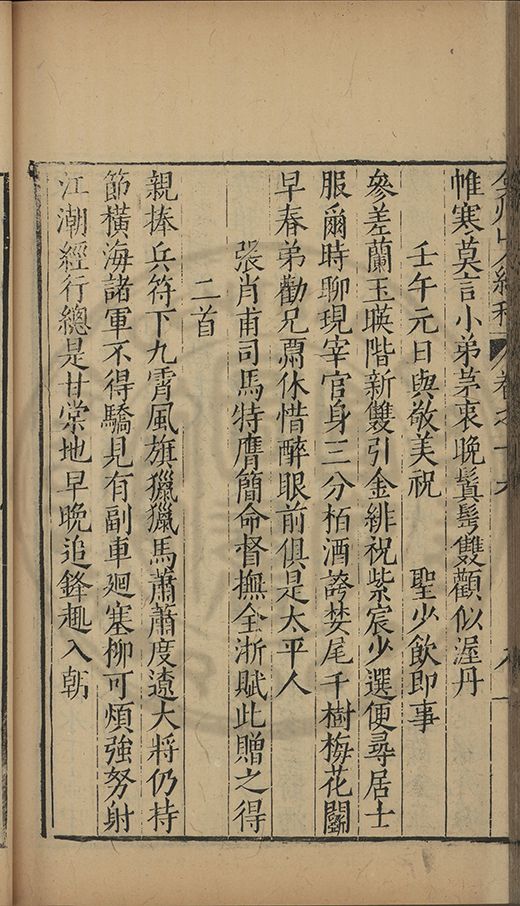 帷寒莫言小弟茅衷晚鬒髩雙顴似渥丹
壬午元日與敬美祝　聖少飲即事
參差蘭玉暎階新雙引金緋祝紫宸少選便尋居士
服爾時聊現宰官身三分栢酒誇婪尾千樹梅花鬬
早春弟勸兄酬休惜醉眼前俱是太平人
張肖甫司馬特膺簡命督撫全浙賦此贈之得
二首
親捧兵符下九霄風旗獵獵馬蕭蕭度遼大將仍持
節橫海諸軍不得驕見有副車廻塞柳可煩強努射
江潮經行總是甘棠地早晚追鋒趣入朝